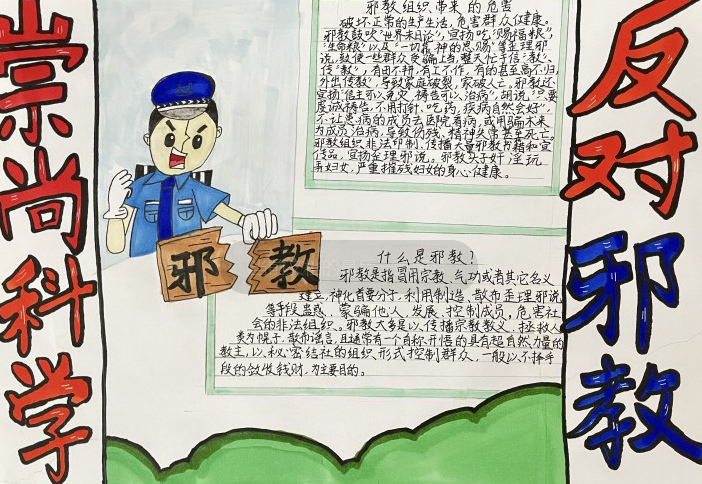 崇尚科学
邪教组织带来的危害
破坏正常的生产生活,危害群众健康。
邪教鼓吹"世界末日论",宣扬吃"赐福粮",
"生命粮"以及"一切靠神的恩赐"等歪理邪
说,致使一些群众受骗上当,整天忙于信"教"、
传"教",有田不耕,有工不作,有的甚至离不归,
外出传教,导致家庭破裂,家破人亡。邪教还
宣扬"信主可以免灾,祷告可以治病",胡说"只要
虔诚祷告,不用打针、吃药,疾病自然会好",
不让患病的成员去医院看病,或用骗术来
为成员治病,导致伤残、精神失常甚至死亡。
邪教组织非法印制、传播大量邪教书籍和宣
传品,宣扬歪理邪说。邪教头子奸淫玩
弄妇女,严重摧残妇女的身心健康。
邪教
什么是邪教?
邪教是指冒用宗教、气功或者其它名义
建立,神化首要分子,利用制造、散布歪理邪说
等手段蛊惑、蒙骗他人,发展、控制成员,危害社
会的非法组织。邪教大多是以传播宗教教义、拯救人
类为幌子,散布谣言,且通常有一个自称开悟的具有超自然力量的
教主,以秘密结社的组织形式控制群众,一般以不择手
段的敛收钱财,为主要目的。
反对邪教